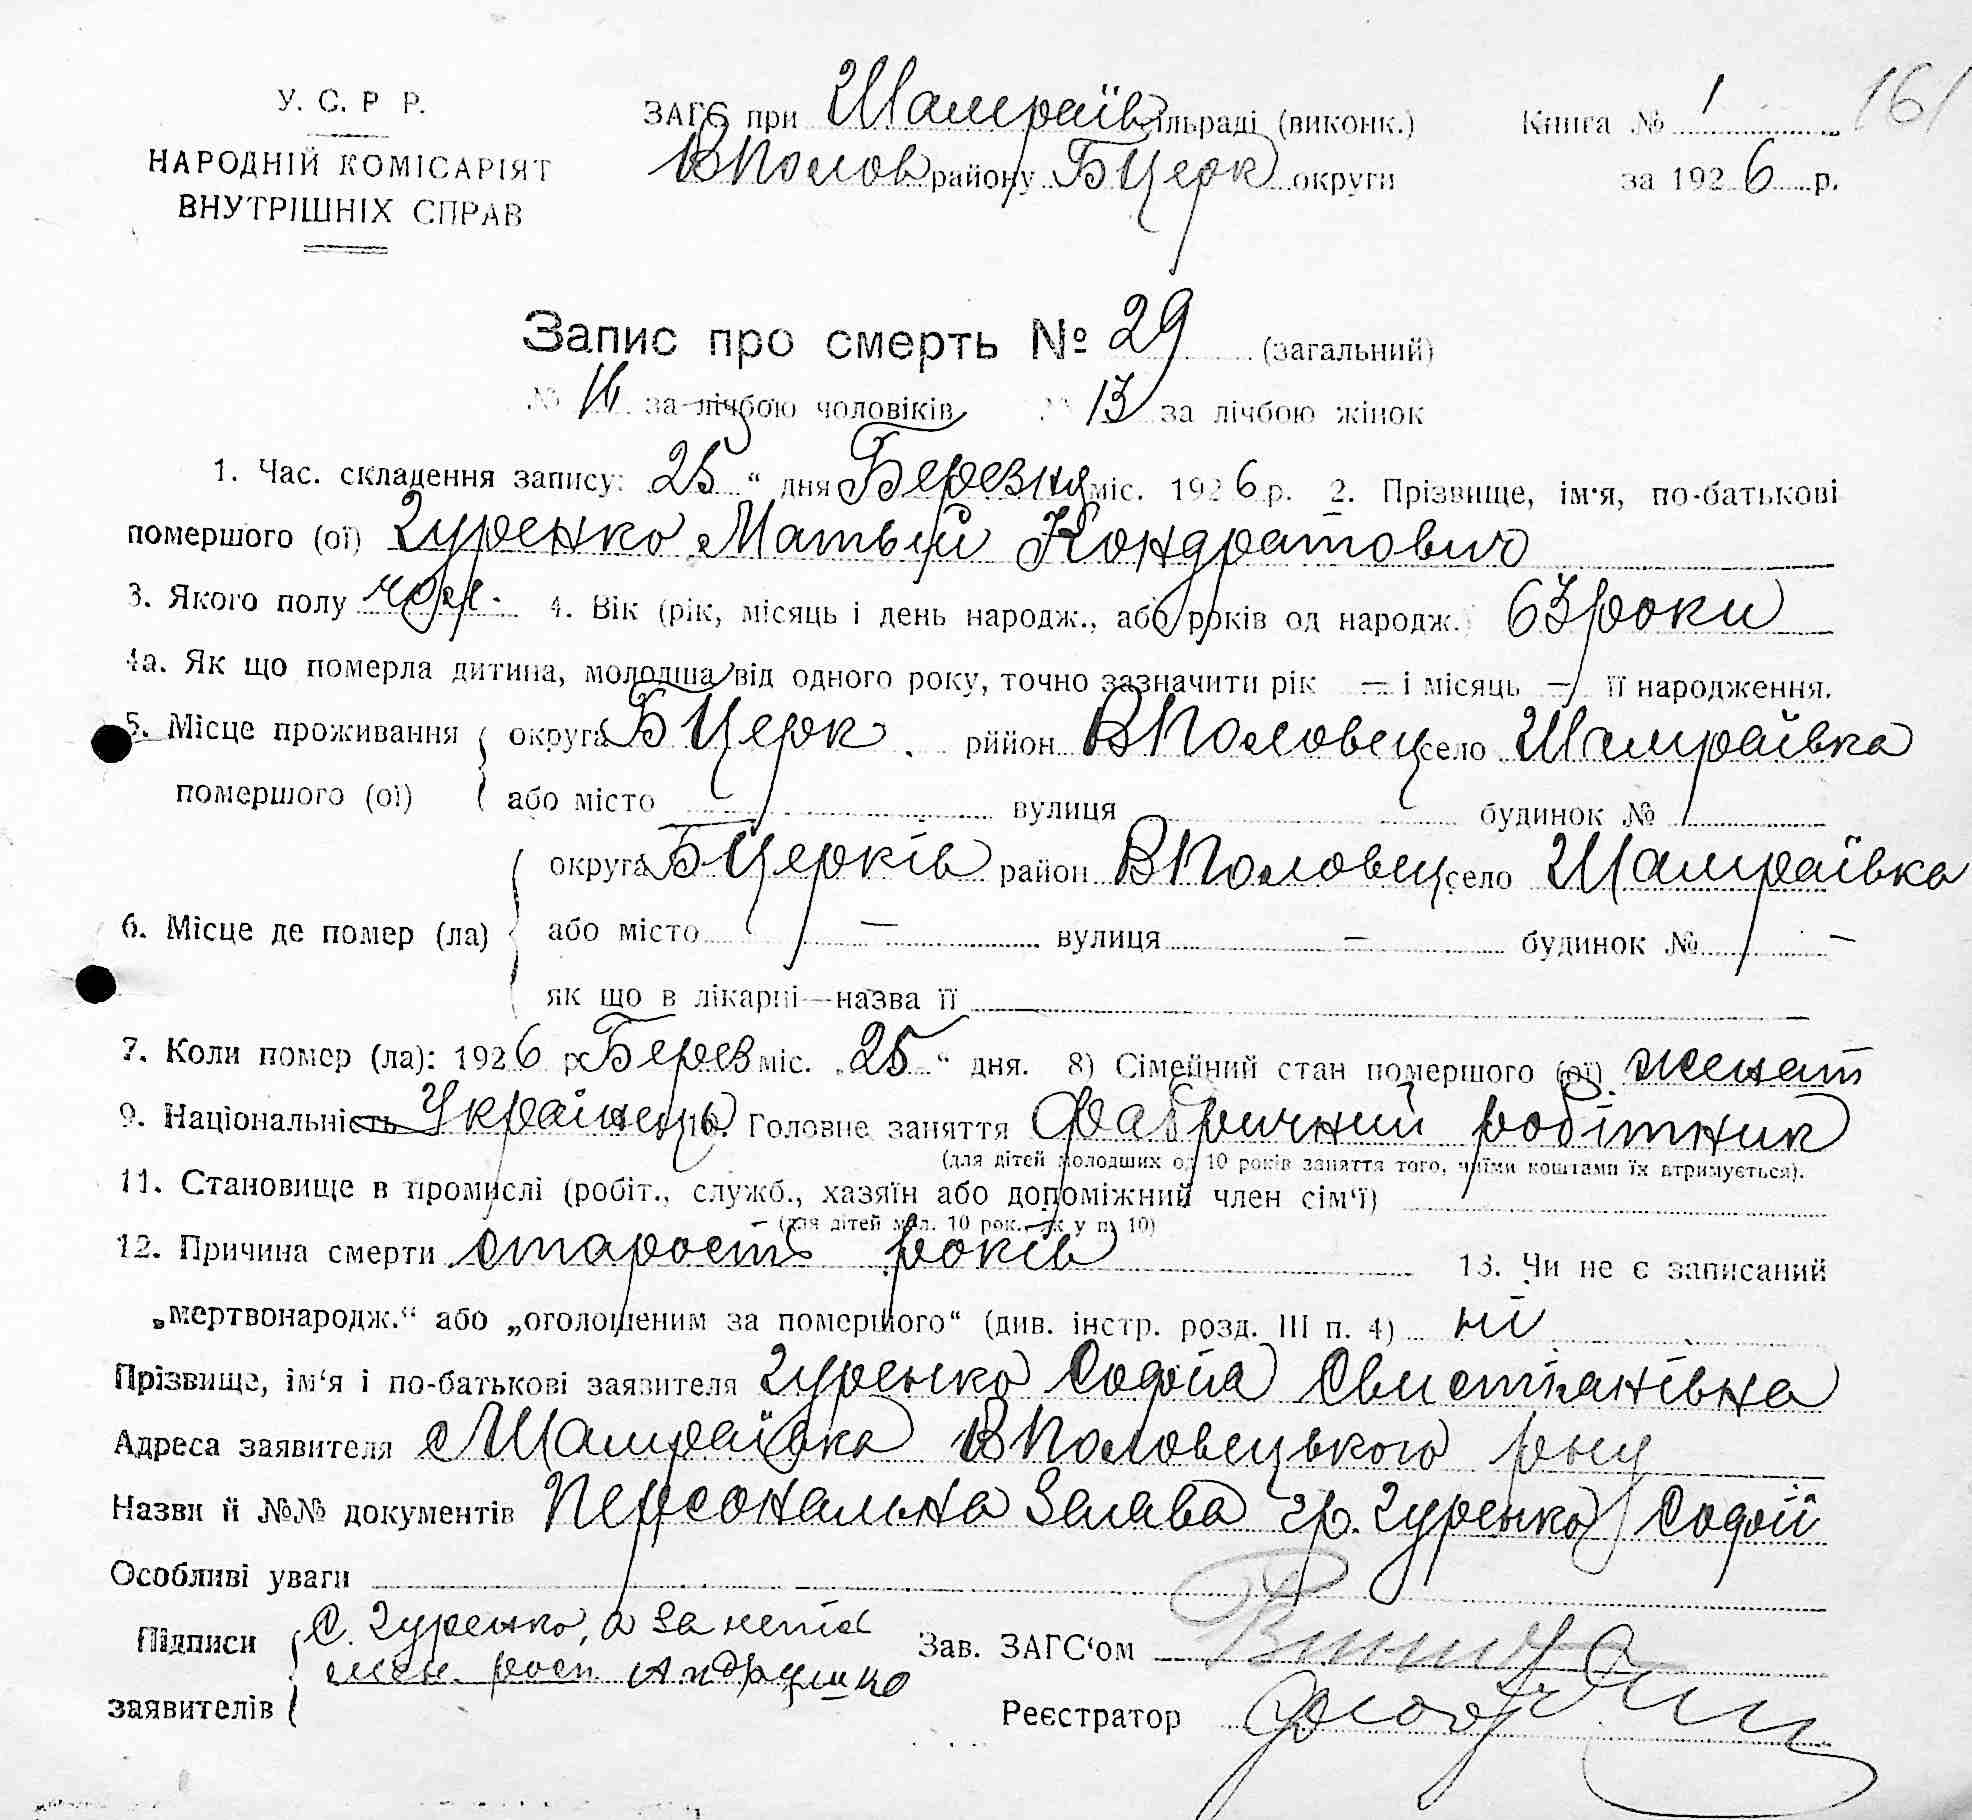 У. С. Р Р.
НАРОДНІЙ КОМІСАРІЯТ
ВНУТРІШНІХ СПРАВ
ЗАГС при Шамраїв сільраді (виконк.)
ВПолов району БЦерк округи
Книга № 1
161
за 1926 р.
Запис про смерть № 29 (загальний)
№ 16 за лічбою чоловіків № 13 за лічбою жінок
1. Час. складення запису: 25 “ дня Березня міс. 1926 р. 2. Прізвище, ім'я, по-батькові
помершого (ої) Гуренко Матвій Кондратович
3. Якого полу чол. 4. Вік (рік, місяць і день народж., або років од народж.) 63 роки
4а. Як що померла дитина, молодша від одного року, точно зазначити рік — і місяць — її народження.
5. Місце проживання помершого (ої) { округа БЦерк. рйион ВПоловец село Шамраївка
або місто вулиця будинок №
6. Місце де помер (ла) { округа БЦерків район ВПоловец село Шамраївка
або місто — вулиця — будинок № —
як що в лікарні—назва її —
7. Коли помер (ла): 1926 р Берез міс. „25“ дня. 8) Сімейний стан помершого (ої) женат
9. Національність Українець 10. Головне заняття Фабричний робітник
(для дітей молодших од 10 років заняття того, чиїми коштами їх втримується).
11. Становище в промислі (робіт., служб., хазяїн або допоміжний член сім'ї)
— (для дітей мол. 10 рок., як у п. 10)
12. Причина смерти старость років 13. Чи не є записаний
„мертвонародж.“ або „оголошеним за помершого“ (див. інстр. розд. III п. 4) ні
Прізвище, ім'я і по-батькові заявителя Гуренко Софія
Адреса заявителя с Шамраївка ВПоловецького рну
Назви й №№ документів Персональна Заява гр. Гуренко Софії
Особливі уваги
Підписи заявителів { С. Гуренко, а за непис
мен. росп. Андрущко
Зав. ЗАГС'ом
Реєстратор